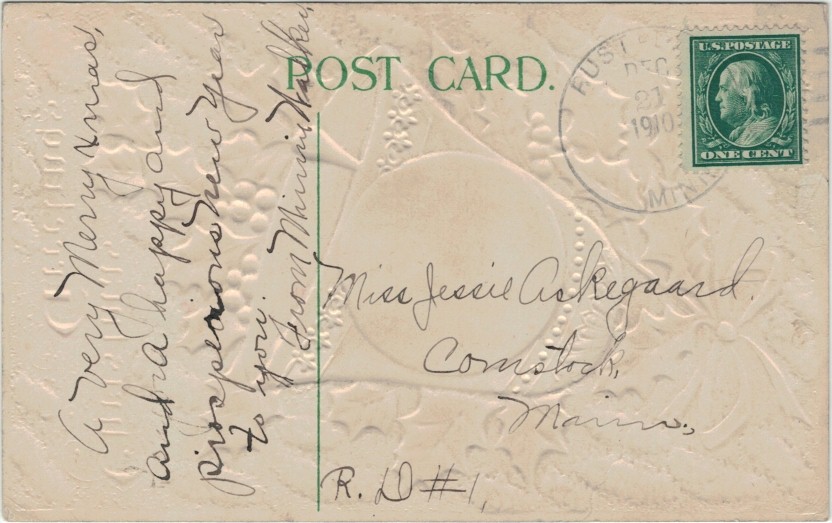 POST CARD.
RUSTAD
DEC
21
1910
MINN
U.S. POSTAGE
ONE CENT
A very Merry Xmas,
and a happy and
prosperous new year
to you.
From Minnie Walker.
Miss Jessie Askegaard.
Comstock,
Minn.,
R. D #1,